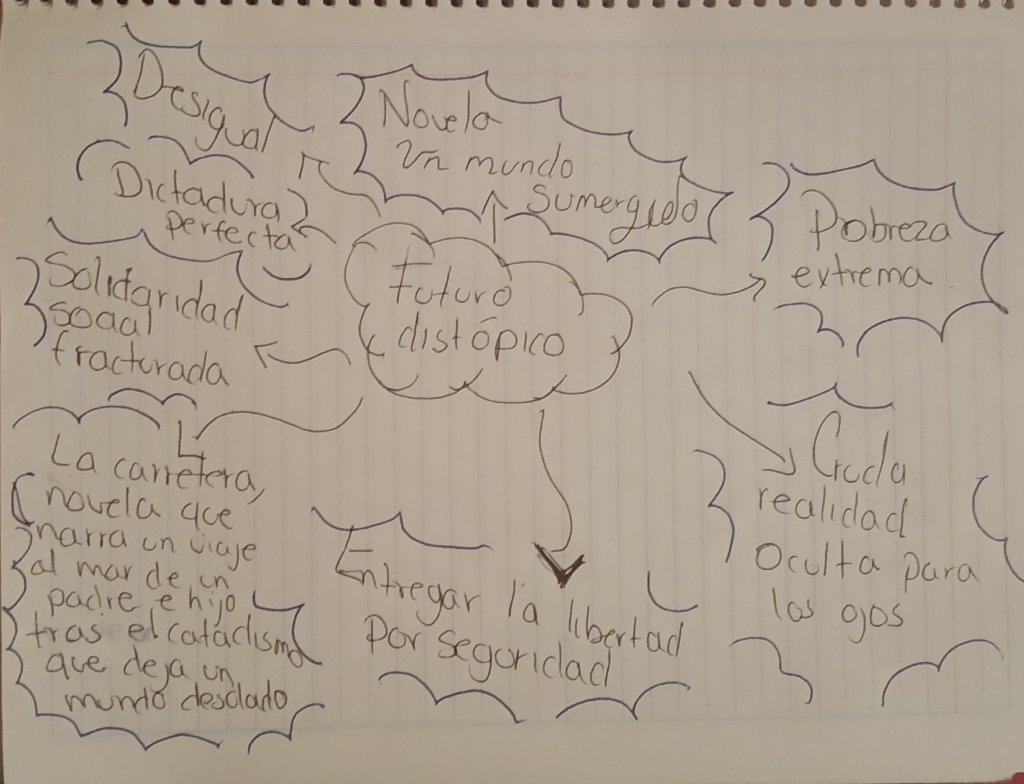 Desigual
Novela
Un mundo
sumergido
Dictadura
perfecta
Pobreza
extrema
Solidaridad
social
fracturada
Futuro
distópico
La carretera,
novela que
narra un viaje
al mar de un
padre e hijo
tras el cataclismo
que deja un
mundo desolado
Entregar la libertad
por seguridad
Cruda
realidad
oculta para
los ojos